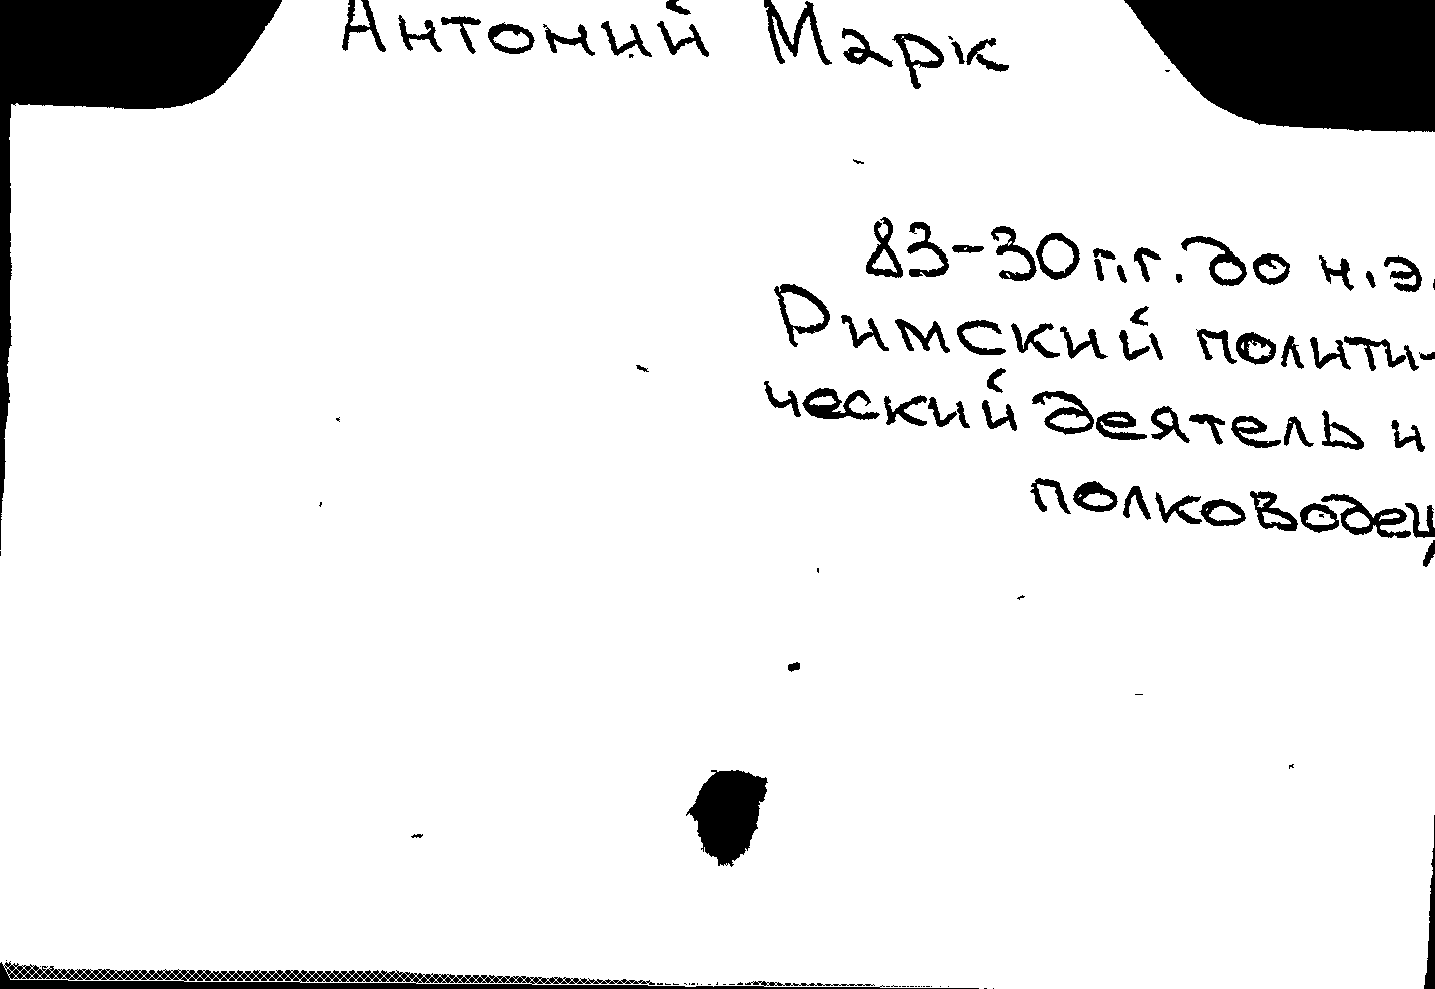 Антоний Марк
83-30 г.г. до н.э.
Римский полити-
ческий деятель и
полководец